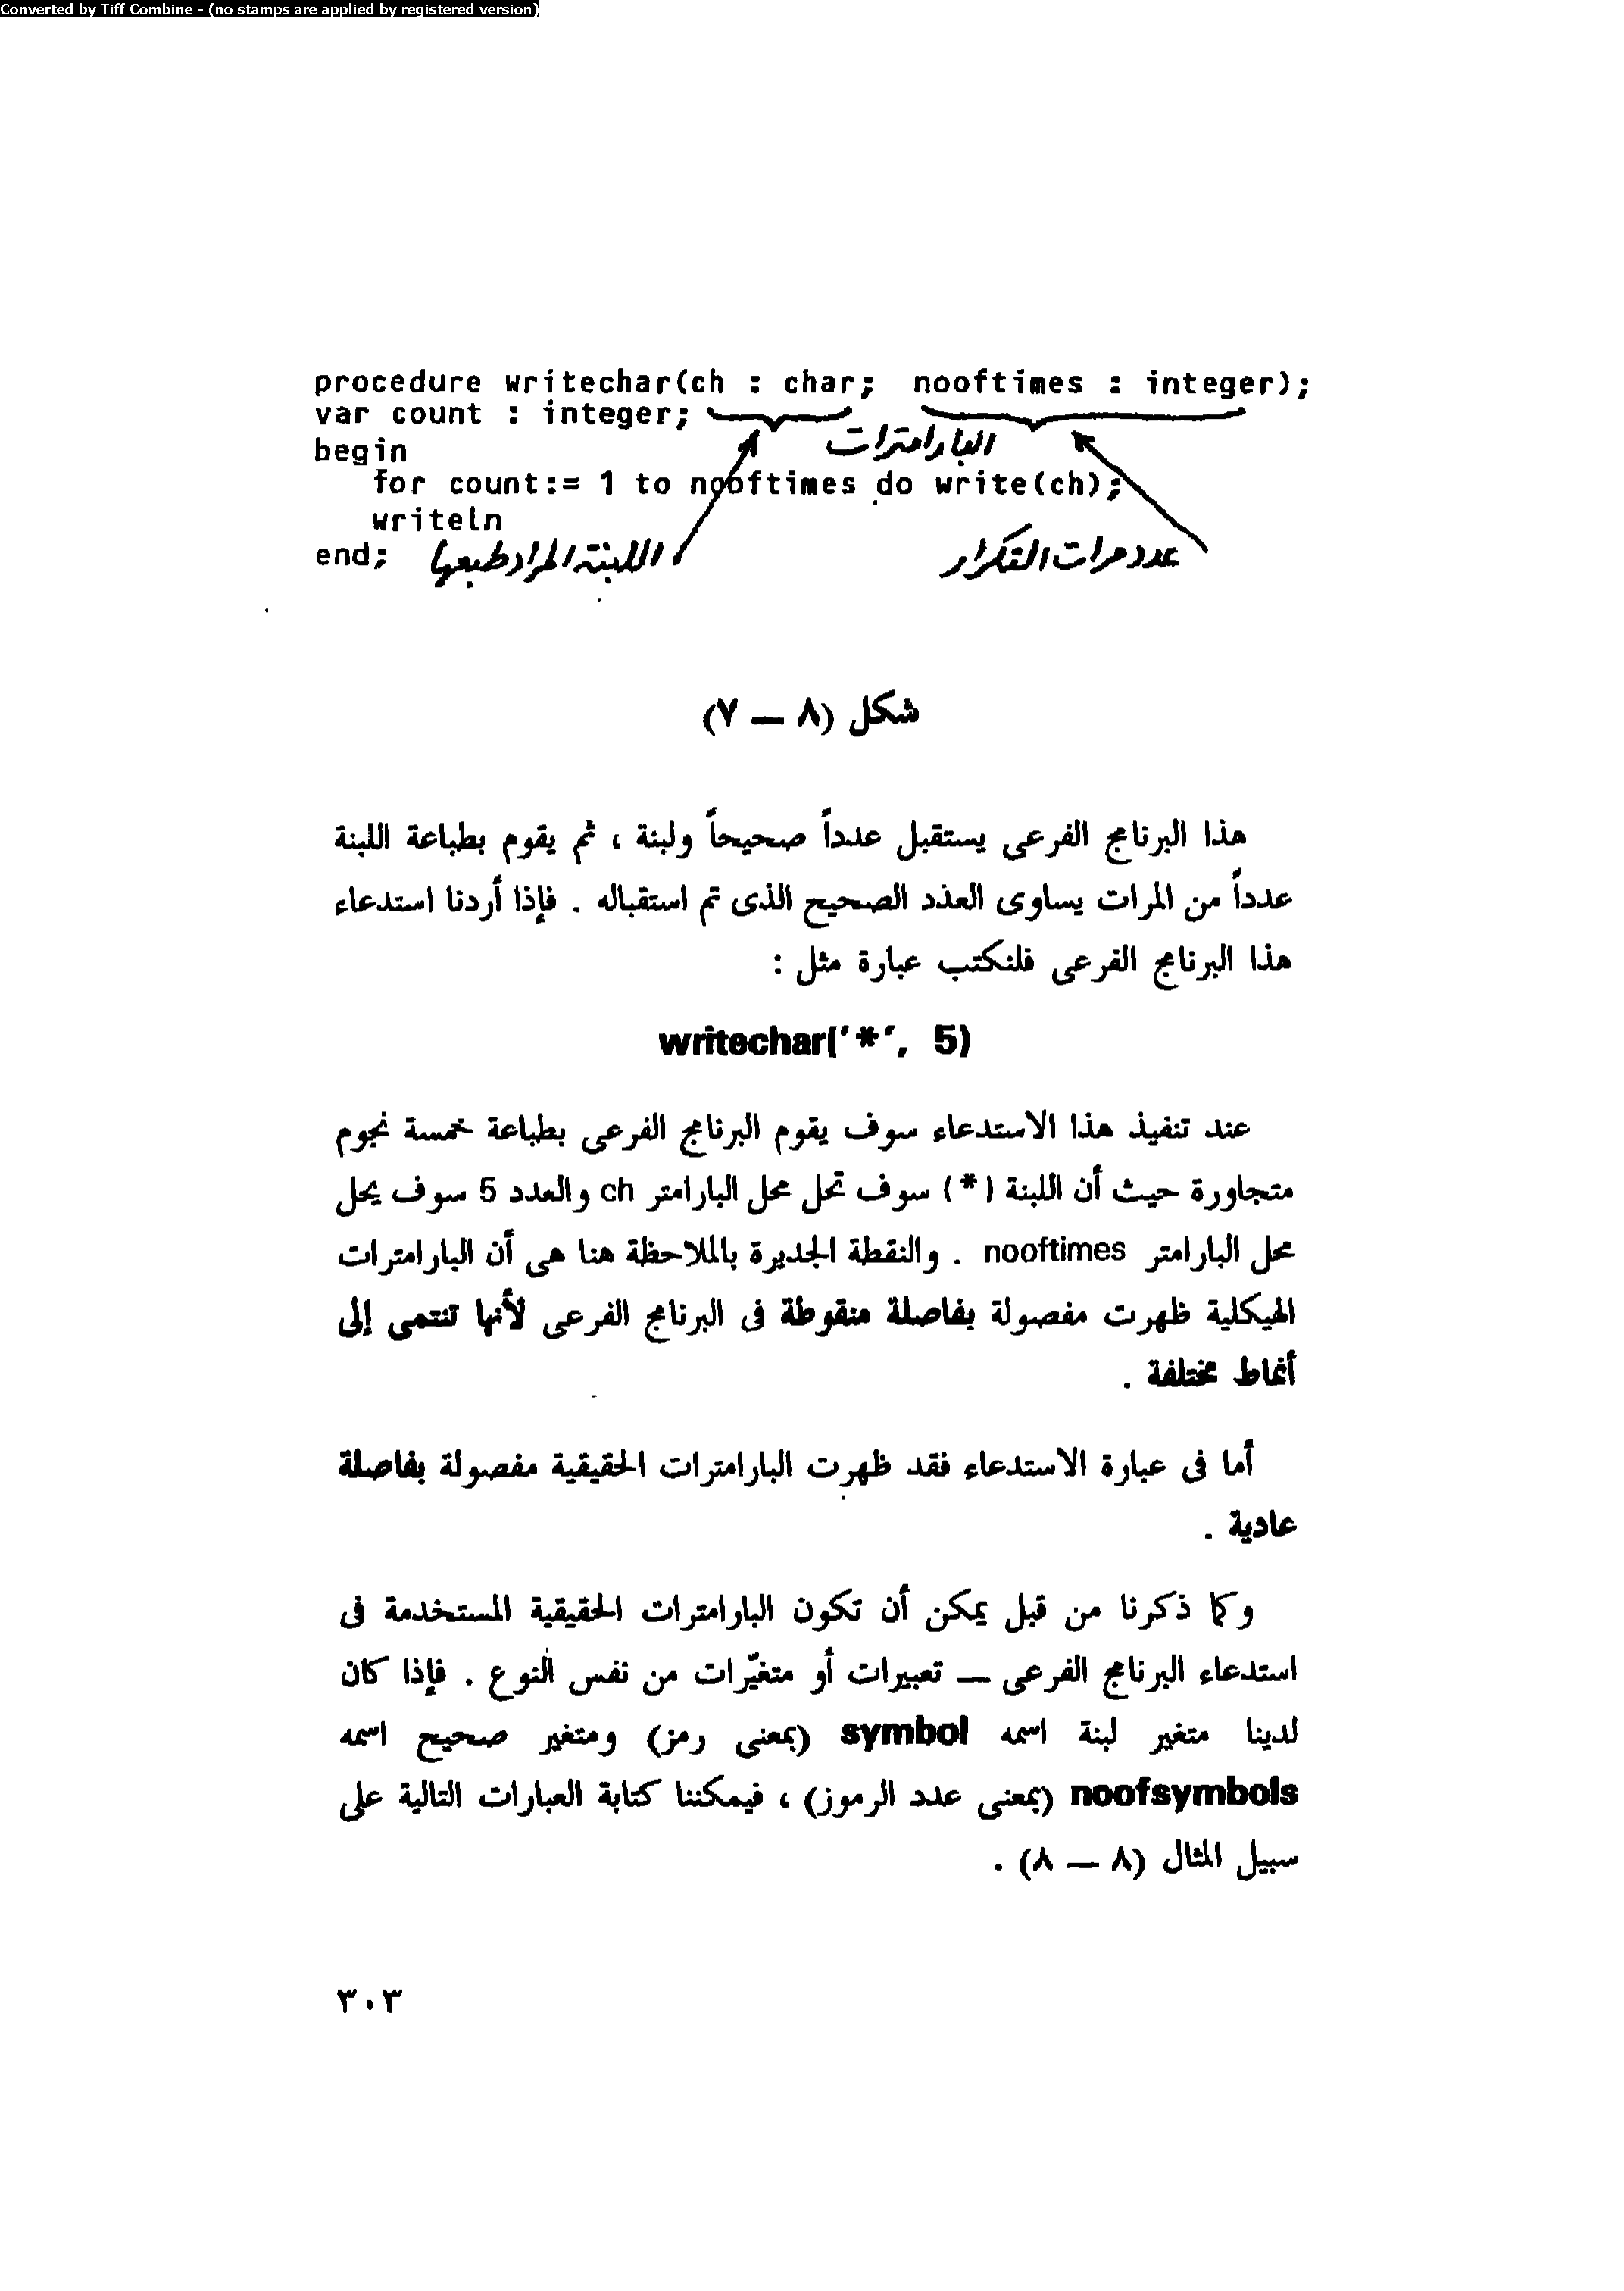 Converted by Tiff Combine - (no stamps are applied by registered version)
procedure writechar(ch : char; nooftimes : integer);
var count : integer;
البارامترات
begin
for count:= 1 to nooftimes do write(ch);
writeln
end;
اللبنة المراد طبعها
عدد مرات التكرار
شكل (٨ — ٧)
هذا البرنامج الفرعى يستقبل عدداً صحيحاً ولبنة ، ثم يقوم بطباعة اللبنة
عدداً من المرات يساوى العدد الصحيح الذى تم استقباله . فإذا أردنا استدعاء
هذا البرنامج الفرعى فلنكتب عبارة مثل :
writechar('*', 5)
عند تنفيذ هذا الاستدعاء سوف يقوم البرنامج الفرعى بطباعة خمسة نجوم
متجاورة حيث أن اللبنة (*) سوف تحل محل البارامتر ch والعدد 5 سوف يحل
محل البارامتر nooftimes . والنقطة الجديرة بالملاحظة هنا هى أن البارامترات
الهيكلية ظهرت مفصولة بفاصلة منقوطة فى البرنامج الفرعى لأنها تنتمى إلى
أنماط مختلفة .
أما فى عبارة الاستدعاء فقد ظهرت البارامترات الحقيقية مفصولة بفاصلة
عادية .
وكما ذكرنا من قبل يمكن أن تكون البارامترات الحقيقية المستخدمة فى
استدعاء البرنامج الفرعى — تعبيرات أو متغيّرات من نفس النوع . فإذا كان
لدينا متغير لبنة اسمه symbol (بمعنى رمز) ومتغير صحيح اسمه
noofsymbols (بمعنى عدد الرموز) ، فيمكننا كتابة العبارات التالية على
سبيل المثال (٨ — ٨) .
٣٠٣